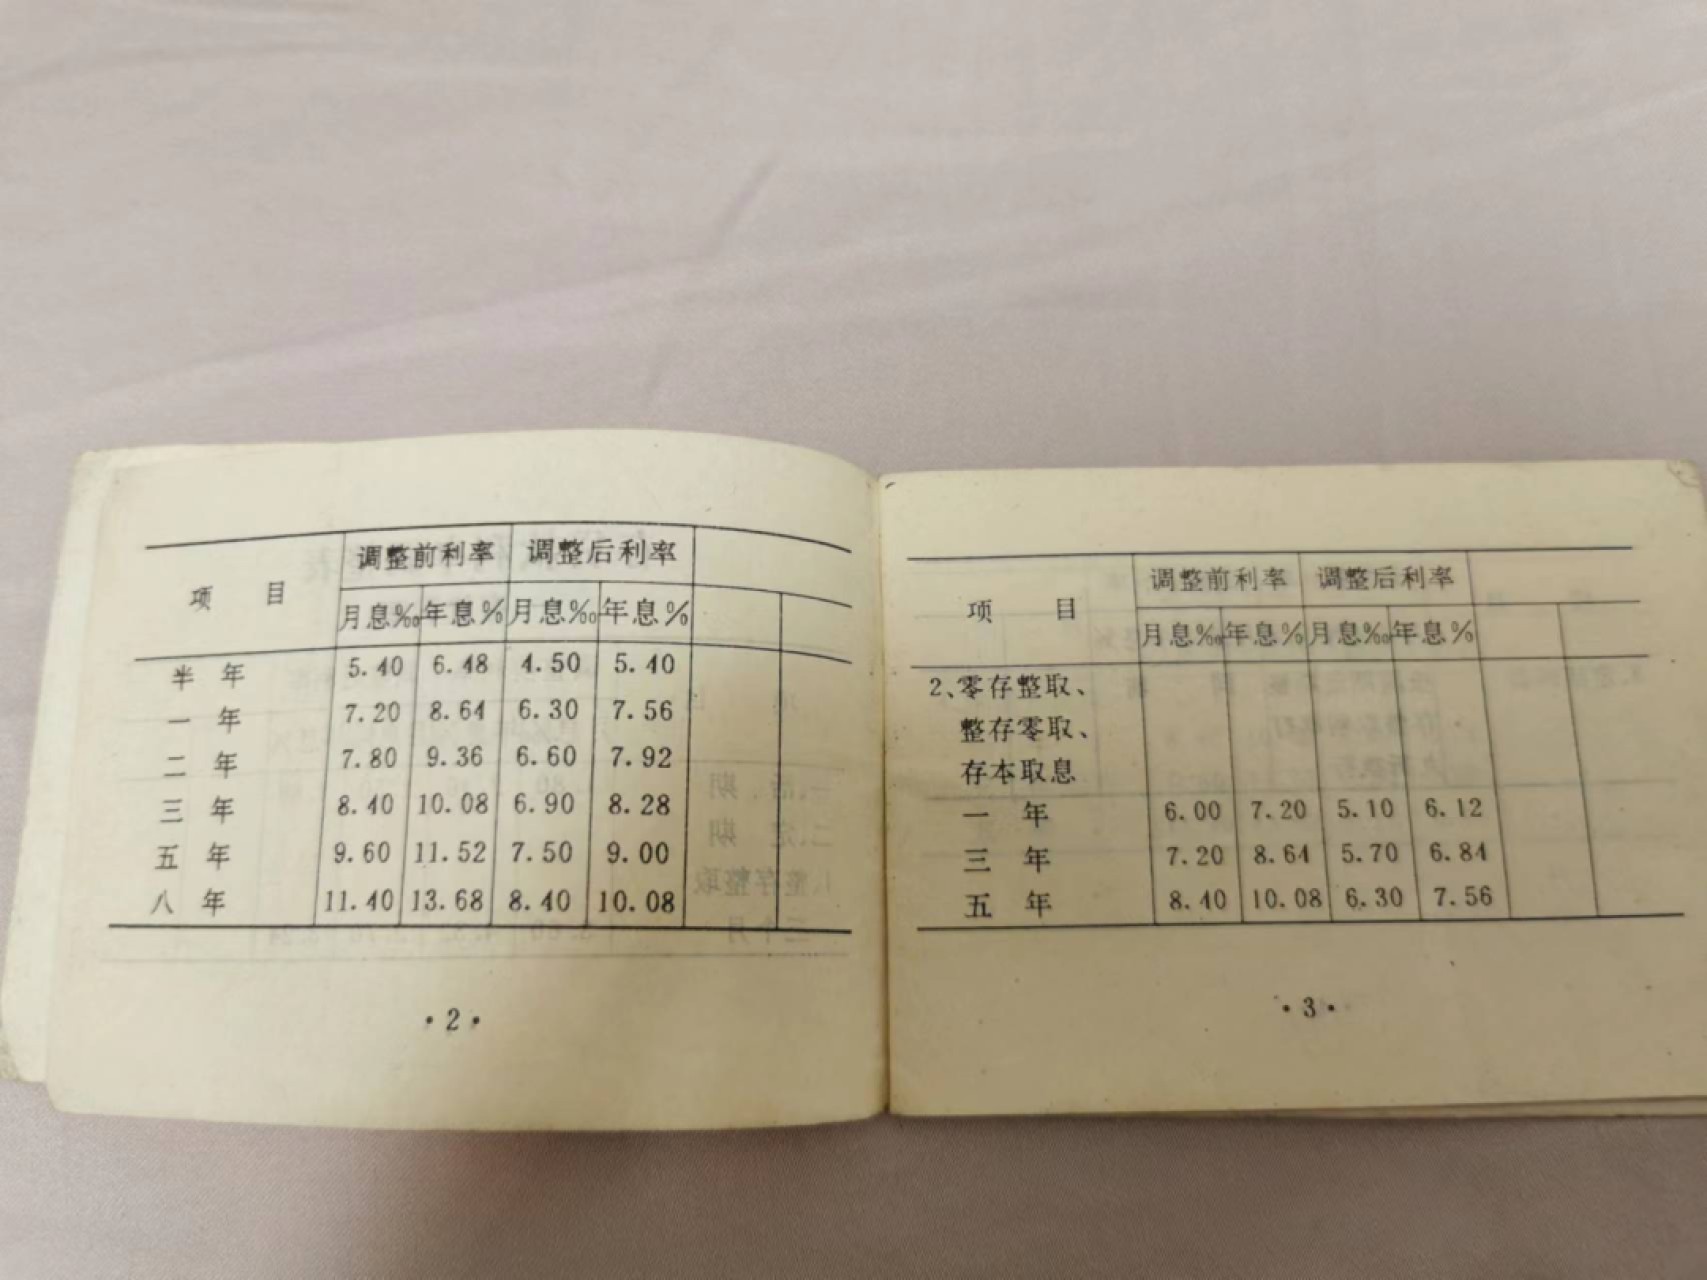 项 目 调整前利率 调整后利率
月息‰ 年息% 月息‰ 年息%
半 年 5.40 6.48 4.50 5.40
一 年 7.20 8.64 6.30 7.56
二 年 7.80 9.36 6.60 7.92
三 年 8.40 10.08 6.90 8.28
五 年 9.60 11.52 7.50 9.00
八 年 11.40 13.68 8.40 10.08
·2·
项 目 调整前利率 调整后利率
月息‰ 年息% 月息‰ 年息%
2、零存整取、
整存零取、
存本取息
一 年 6.00 7.20 5.10 6.12
三 年 7.20 8.64 5.70 6.84
五 年 8.40 10.08 6.30 7.56
·3·